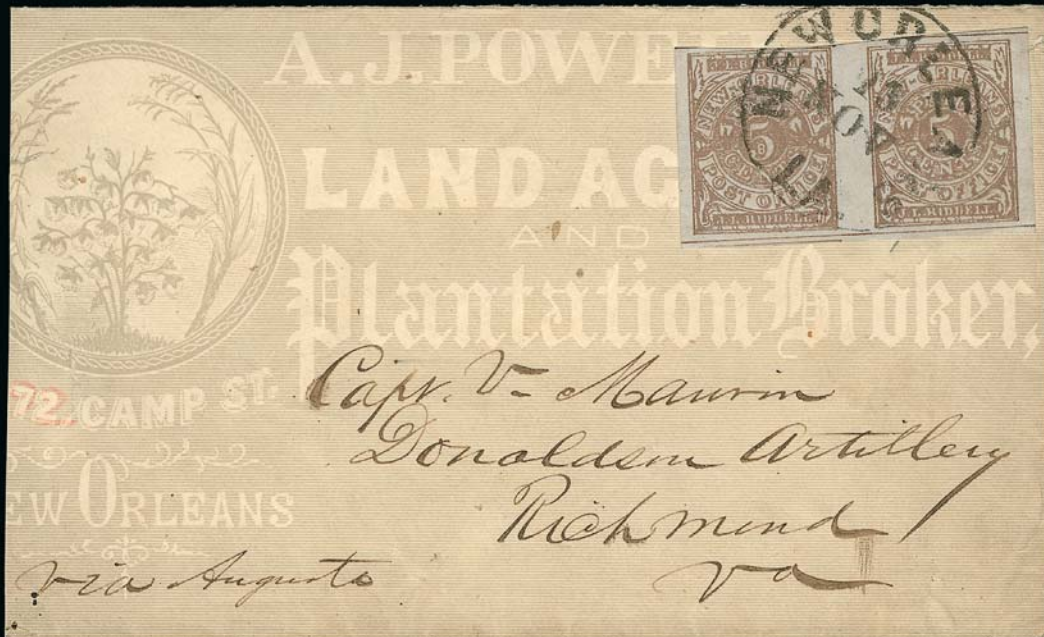 A. J. POWE
LAND AG
AND
Plantation Broker,
72, CAMP ST.
EW ORLEANS
NEW ORLEANS
5
CENTS
POST OFFICE
J.L. RIDDELL
NEW ORLEANS
5
CENTS
POST OFFICE
J.L. RIDDELL
15
NOV
Capt. V- Maurin
Donaldson Artillery
Richmond
Va
via Augusta